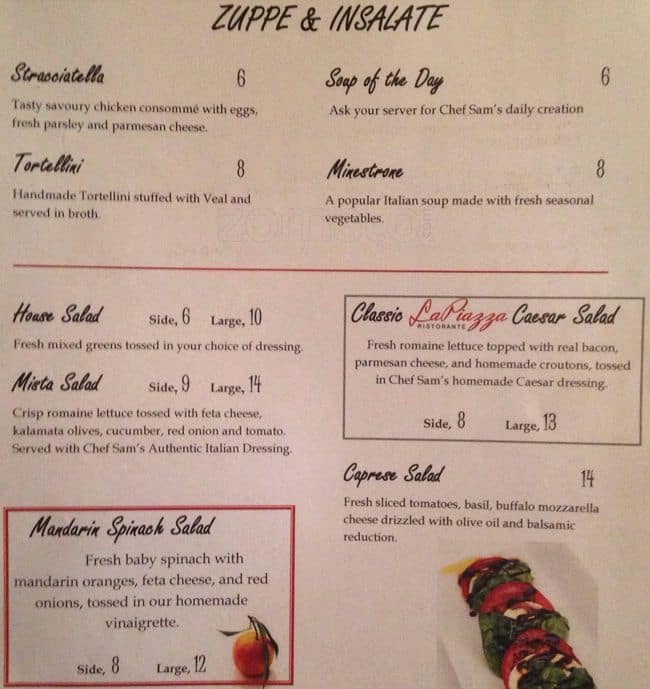 ZUPPE & INSALATE
Stracciatella 6
Tasty savoury chicken consommé with eggs,
fresh parsley and parmesan cheese.
Soup of the Day 6
Ask your server for Chef Sam's daily creation
Tortellini 8
Handmade Tortellini stuffed with Veal and
served in broth.
Minestrone 8
A popular Italian soup made with fresh seasonal
vegetables.
House Salad Side, 6 Large, 10
Fresh mixed greens tossed in your choice of dressing.
Mista Salad Side, 9 Large, 14
Crisp romaine lettuce tossed with feta cheese,
kalamata olives, cucumber, red onion and tomato.
Served with Chef Sam's Authentic Italian Dressing.
Classic La Piazza Caesar Salad
RISTORANTE
Fresh romaine lettuce topped with real bacon,
parmesan cheese, and homemade croutons, tossed
in Chef Sam's homemade Caesar dressing.
Side, 8 Large, 13
Caprese Salad 14
Fresh sliced tomatoes, basil, buffalo mozzarella
cheese drizzled with olive oil and balsamic
reduction.
Mandarin Spinach Salad
Fresh baby spinach with
mandarin oranges, feta cheese, and red
onions, tossed in our homemade
vinaigrette.
Side, 8 Large, 12